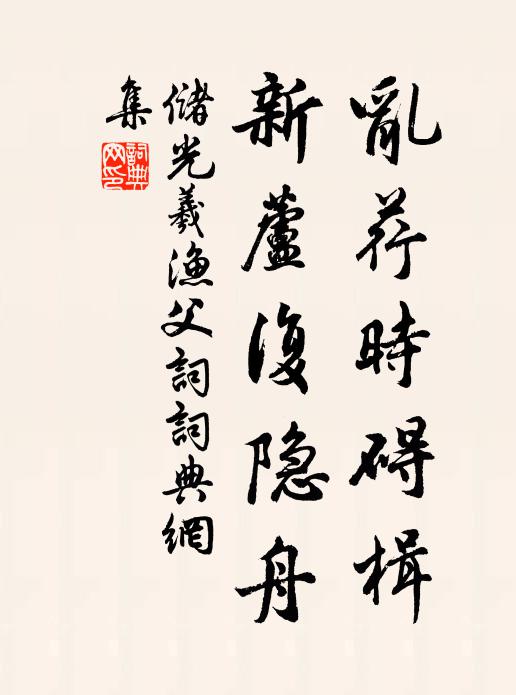 亂荇時碍楫
新蘆復隐舟
儲光羲漁父詞詞典網
集
詞典网印